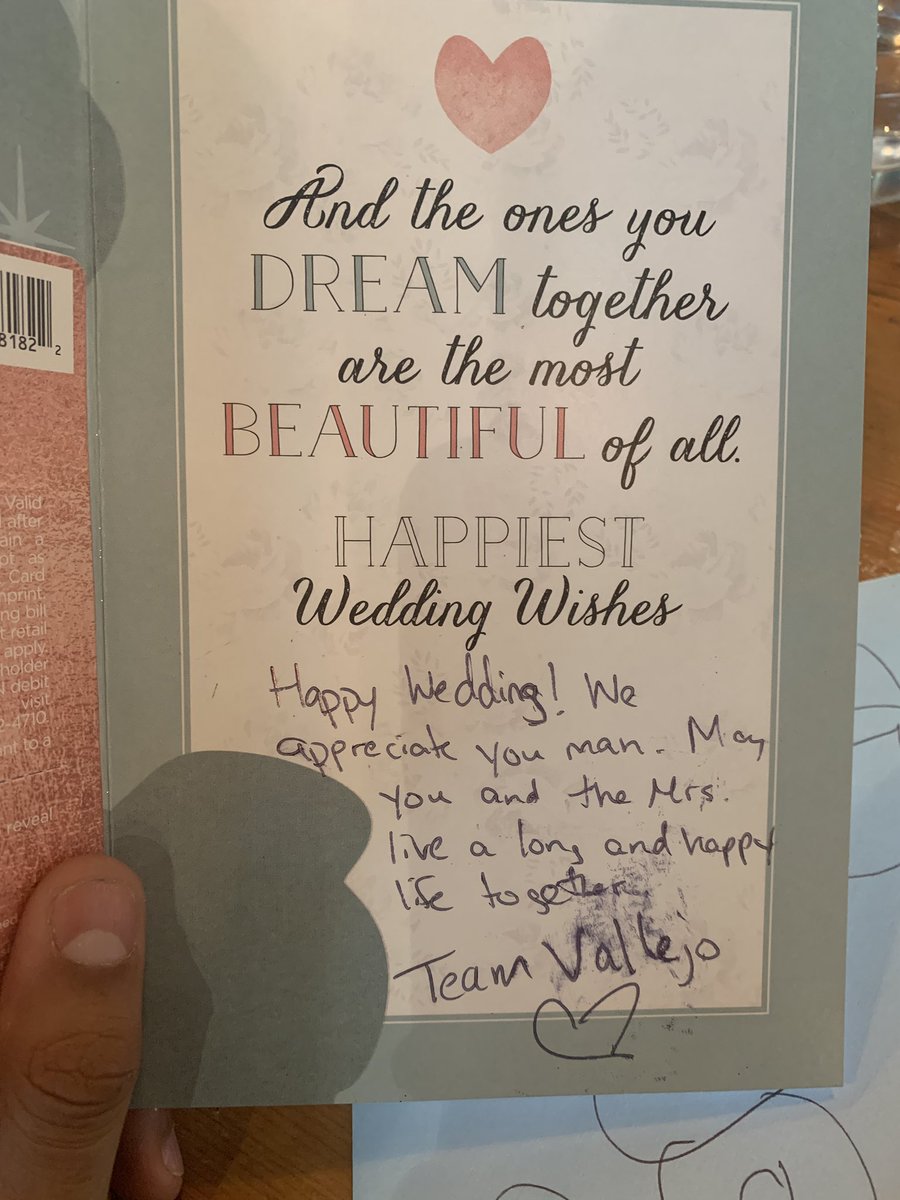 And the ones you
DREAM together
are the most
BEAUTIFUL of all.
HAPPIEST
Wedding Wishes
Happy Wedding! We
appreciate you man. May
you and the Mrs.
live a long and happy
life together.
Team Vallejo
8182 2
Valid
after
ain a
pt as
Card
mprint.
ng bill
t retail
apply.
holder
debit
visit
2-4710.
ent to a
reveal